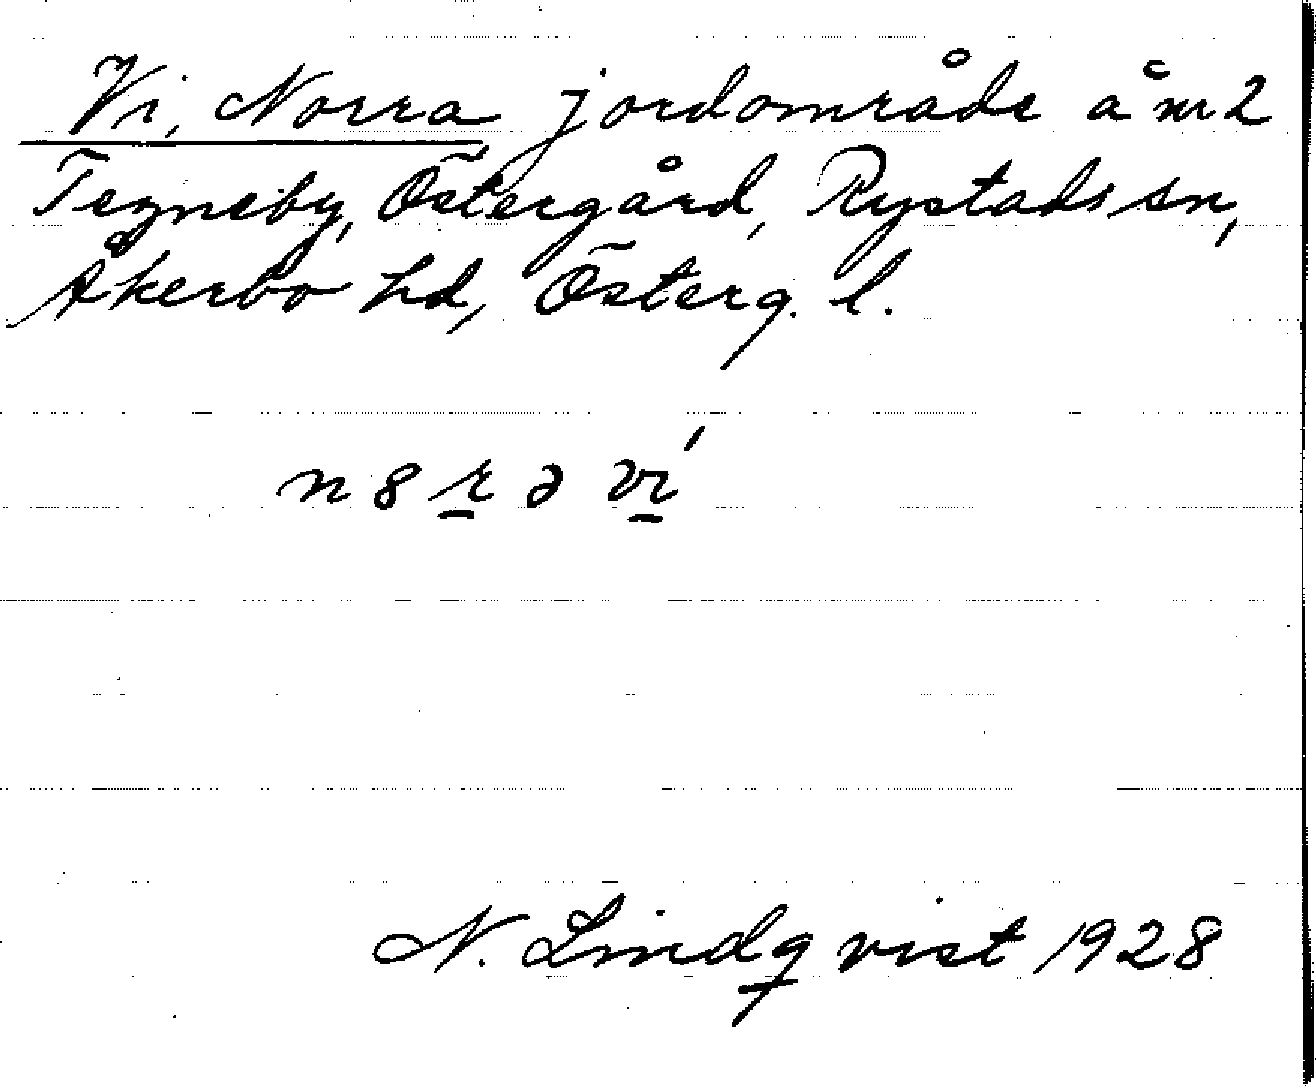 Vi, Norra jordområde å nr 2
Tegneby, Östergård, Rystads sn,
Åkerbo hd, Österg. l.
n 8 r ə vi ́
N. Lindqvist 1928